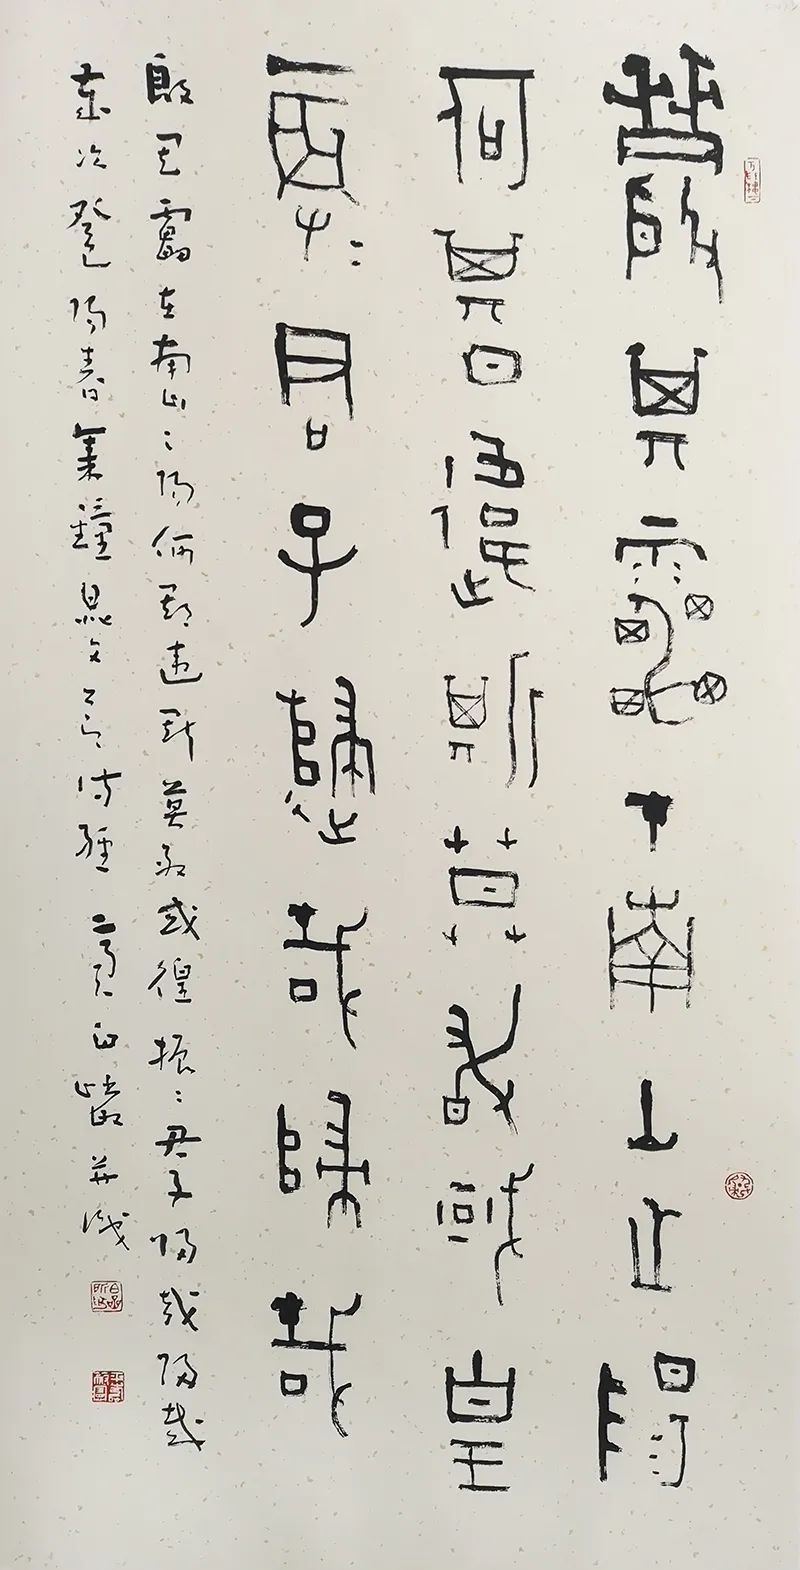 殷其靁在南山之陽
何斯違斯莫敢或皇
振=君子歸哉歸哉
殷其靁在南山之陽何斯違斯莫敢或徨振〻君子歸哉歸哉
歲次癸巳陽春集鐘鼎文 詩經 并識